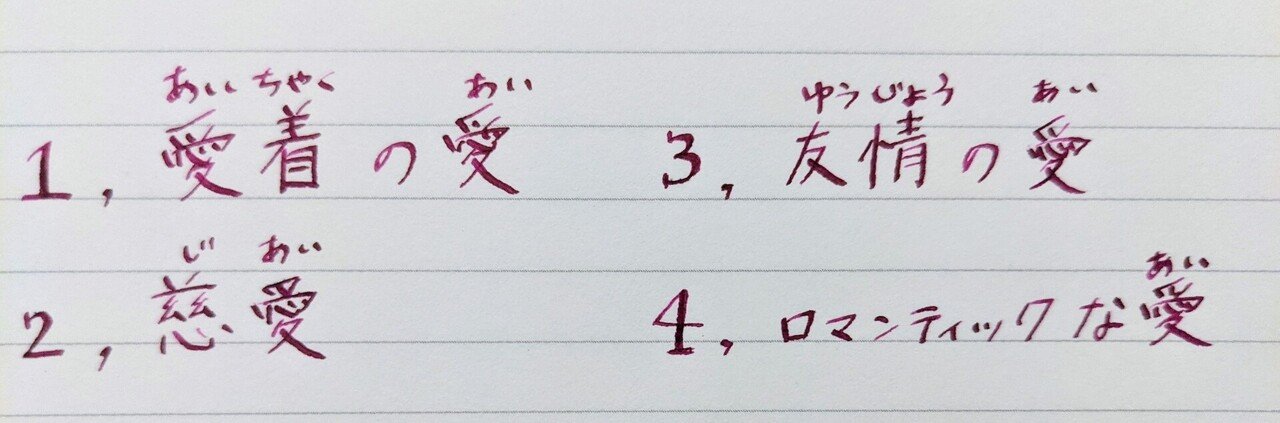 あいちゃく あい
1, 愛着の愛
じ あい
2, 慈愛
ゆうじょう あい
3, 友情の愛
あい
4, ロマンティックな愛